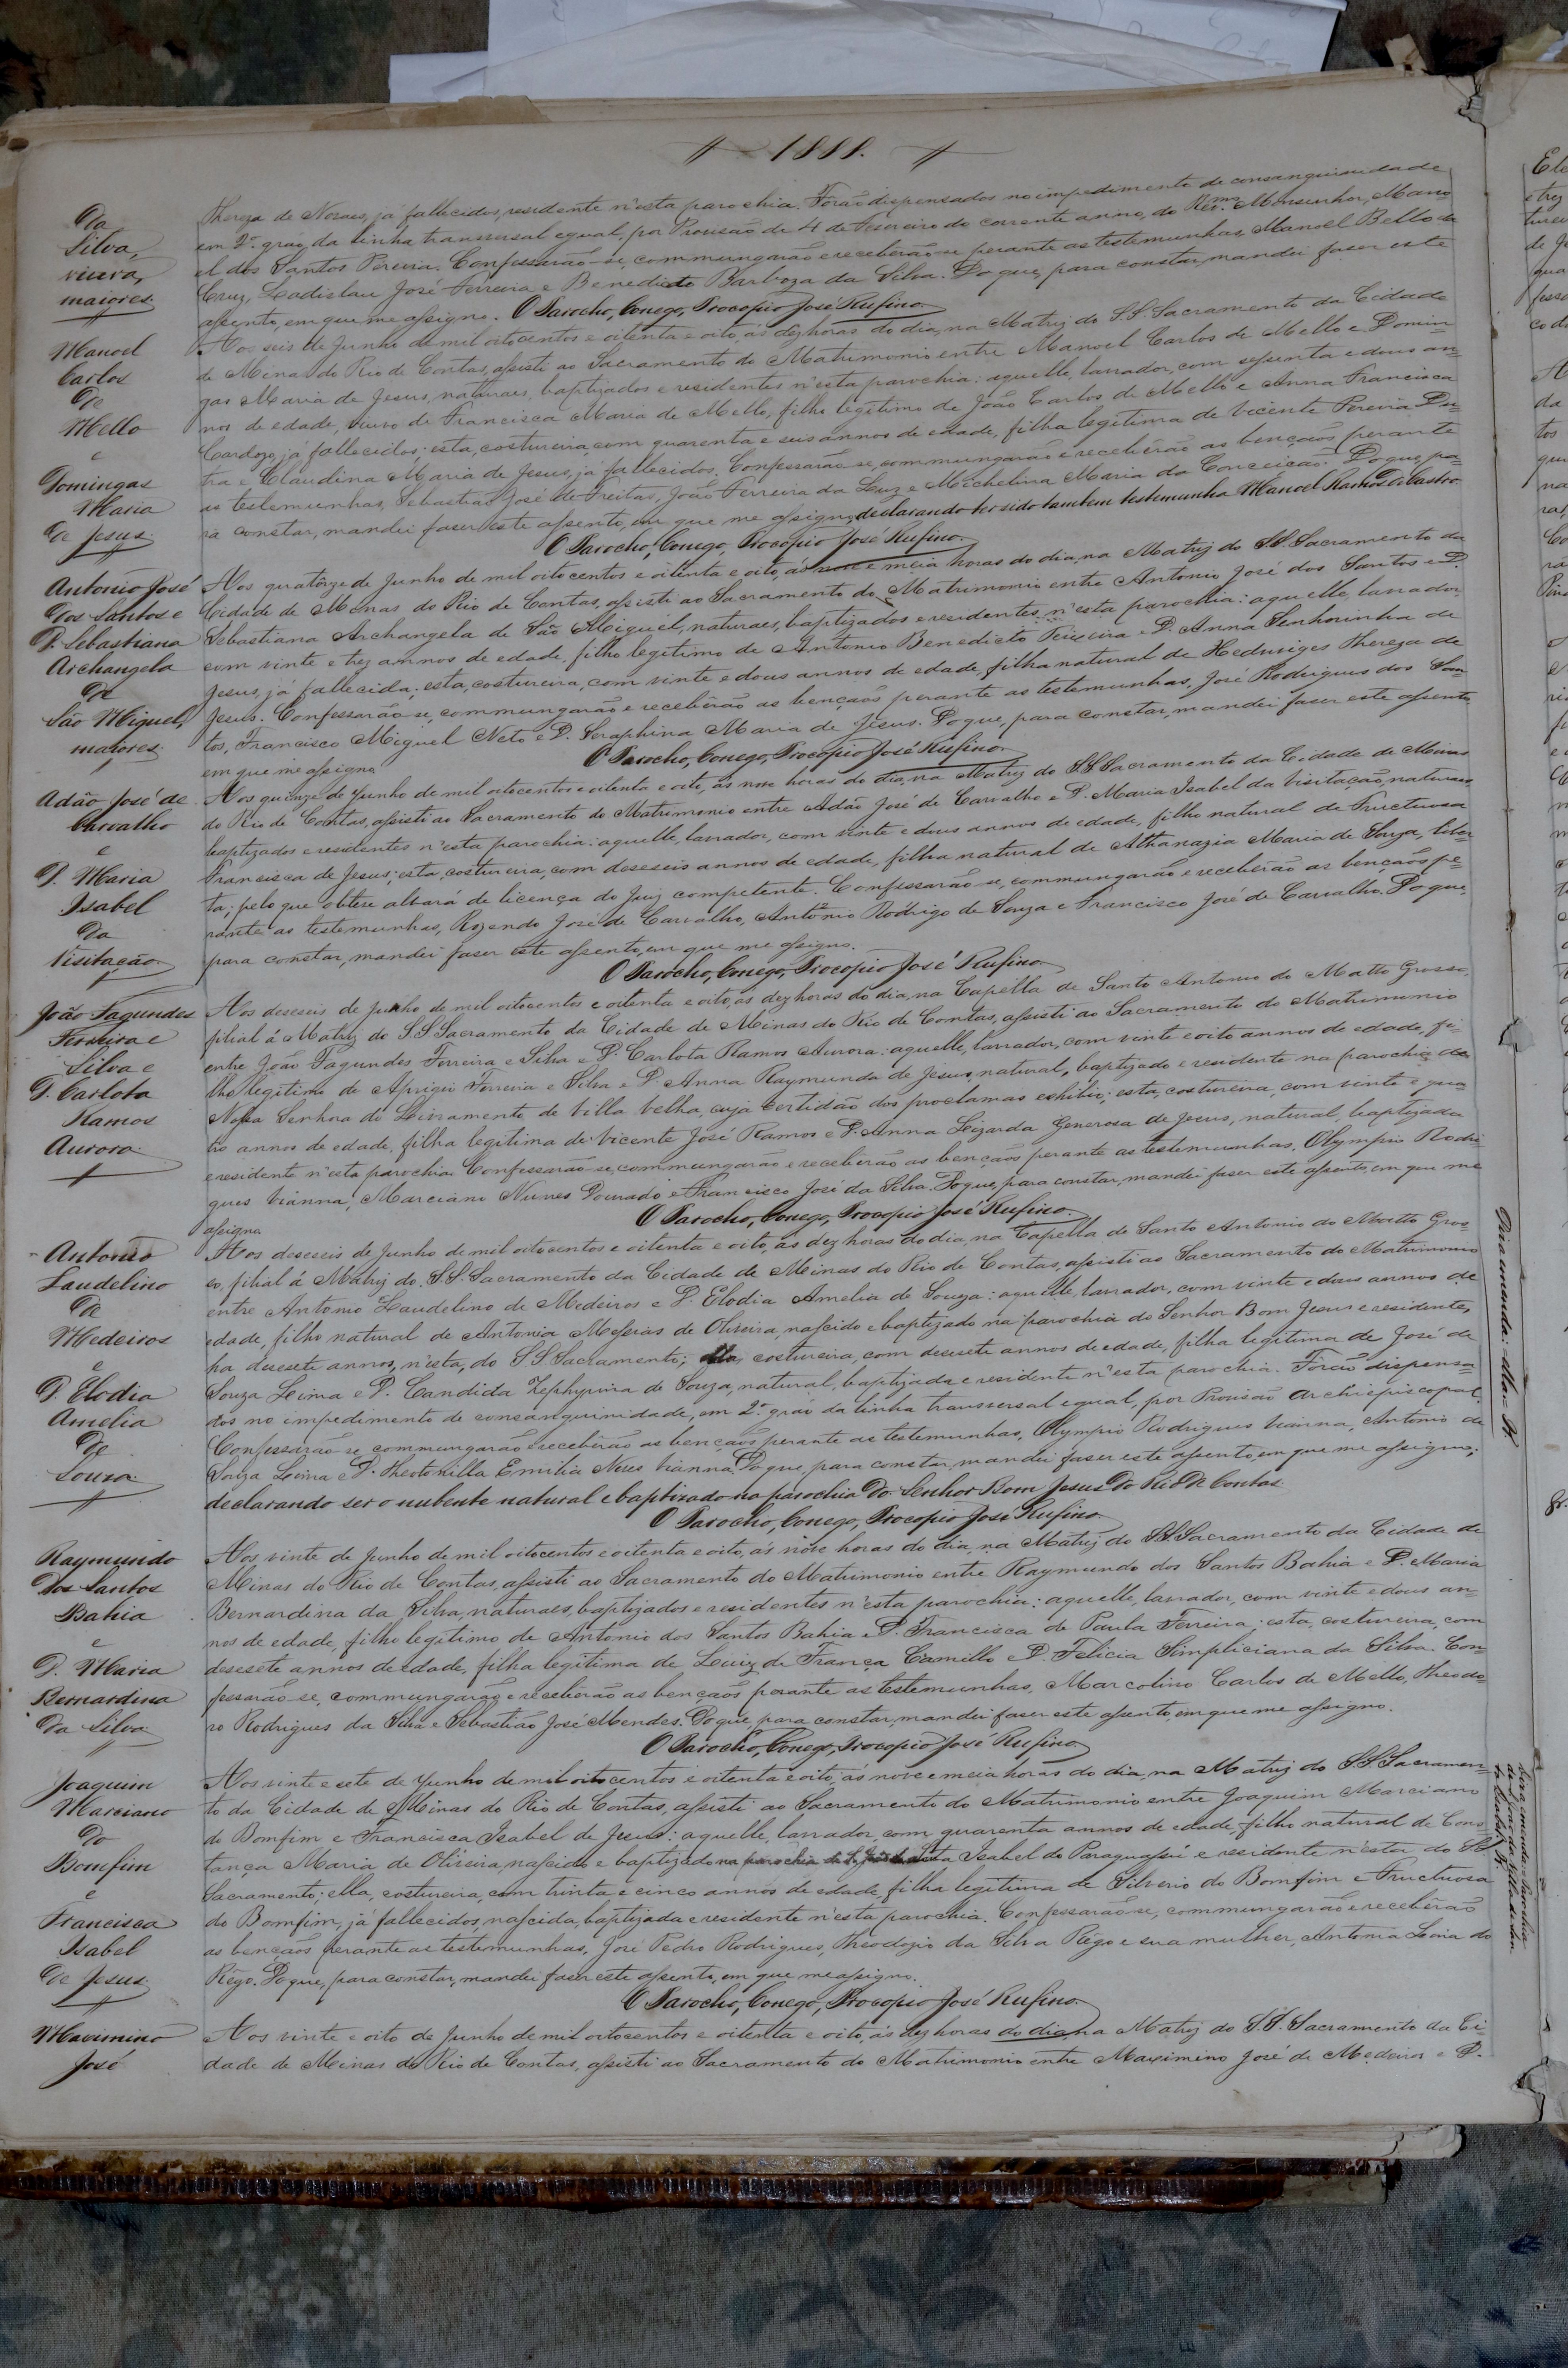 1888.
Da
Silva,
viuva,
maiores
Thereza de Novaes, já fallecidos, residente n'esta parochia. Forão dispensados no impedimento de consanguinidade
em 2º grão da linha transversal egual, por Provisão de 4 de Fevereiro do corrente anno, do Revmo Monsenhor, Mano
el dos Santos Pereira. Confessarão-se, commungarão e receberão-se perante as testemunhas, Manoel Bello da
Cruz, Ladislau José Ferreira e Benedicto Barboza da Silva. Do que, para constar, mandei faser este
assento, em que me assigno. O Parocho, Conego, Procopio José Rufino.
Manoel
Carlos
De
Mello
e
Domingas
Maria
de Jesus
Aos seis de Junho de mil oito centos e oitenta e oito, ás dez horas do dia, na Matriz do S.S. Sacramento da Cidade
de Minas do Rio de Contas, assisti ao Sacramento do Matrimonio entre Manoel Carlos de Mello e Domin-
gas Maria de Jesus, naturaes, baptizados e residentes n'esta parochia: aquelle, lavrador, com sessenta e dous an-
nos de edade, viuvo de Francisca Maria de Mello, filho legitimo de João Carlos de Mello e Anna Francisca
Cardozo, já fallecidos; esta, costureira, com quarenta e seis annos de edade, filha legitima de Vicente Pereira Du-
tra e Claudina Maria de Jesus, já fallecidos. Confessarão-se, commungarão e receberão as bençãos perante
as testemunhas, Sebastião José de Freitas, João Ferreira da Luz e Michelina Maria da Conceição. Do que, pa-
ra constar, mandei faser este assento, em que me assigno, declarando ter sido tambem testemunha Manoel Ramos de Castro
O Parocho, Conego, Procopio José Rufino.
Antonio José
dos Santos e
D. Sebastiana
Archangela
De
São Miguel,
maiores
Aos quatorze de Junho de mil oito centos e oitenta e oito, ás nove e meia horas do dia, na Matriz do S.S. Sacramento da
Cidade de Minas do Rio de Contas, assisti ao Sacramento do Matrimonio entre Antonio José dos Santos e D.
Sebastiana Archangela de São Miguel, naturaes, baptizados e residentes n'esta parochia: aquelle, lavrador,
com vinte e trez annos de edade, filho legitimo de Antonio Benedicto Teixeira e D. Anna Senhorinha de
Jesus, já fallecida; esta, costureira, com vinte e dous annos de edade, filha natural de Heduviges Thereza de
Jesus. Confessarão-se, commungarão e receberão as bençãos perante as testemunhas, José Rodrigues dos San-
tos, Francisco Miguel Neto e D. Seraphina Maria de Jesus. Do que, para constar, mandei faser este assento
em que me assigno O Parocho, Conego, Procopio José Rufino.
Adão José de
Carvalho
e
D. Maria
Isabel
da
Visitação
Aos quinze de Junho de mil oito centos e oitenta e oito, ás nove horas do dia, na Matriz do S.S. Sacramento da Cidade de Minas
do Rio de Contas, assisti ao Sacramento do Matrimonio entre Adão José de Carvalho e D. Maria Isabel da Visitação, naturaes
baptizados e residentes n'esta parochia: aquelle, lavrador, com vinte e dous annos de edade, filho natural de Fructuosa
Francisca de Jesus; esta, costureira, com deseseis annos de edade, filha natural de Athanazia Maria de Souza, liber-
ta; pelo que obteve alvará de licença do Juiz competente. Confessarão-se, commungarão e receberão as bençãos pe-
rante as testemunhas, Rozendo José de Carvalho, Antonio Rodrigo de Souza e Francisco José de Carvalho. Do que,
para constar, mandei faser este assento, em que me assigno.
O Parocho, Conego, Procopio José Rufino.
João Fagundes
Ferreira e
Silva e
D. Carlota
Ramos
Aurora
Aos deseseis de Junho de mil oito centos e oitenta e oito, ás dez horas do dia, na Capella de Santo Antonio do Matto Grosso,
filial á Matriz do S.S. Sacramento da Cidade de Minas do Rio de Contas, assisti ao Sacramento do Matrimonio
entre João Fagundes Ferreira e Silva e D. Carlota Ramos Aurora: aquelle, lavrador, com vinte e oito annos de edade, fi-
lho legitimo de Aprigio Ferreira e Silva e D. Anna Raymunda de Jesus, natural, baptizado e residente na parochia de
Nossa Senhora do Livramento de Villa Velha, cuja certidão dos proclamas exhibio; esta, costureira, com vinte e qua
tro annos de edade, filha legitima de Vicente José Ramos e D. Anna Lizarda Generosa de Jesus, natural, baptizada
e residente n'esta parochia. Confessarão-se, commungarão e receberão as bençãos perante as testemunhas, Olympio Rodri-
gues Vianna, Marciano Nunes Dourado e Francisco José da Silva. Do que, para constar, mandei faser este assento, em que me
assigno O Parocho, Conego, Procopio José Rufino.
Antonio
Laudelino
De
Medeiros
e
D. Elodia
Amelia
De
Souza
Aos deseseis de Junho de mil oito centos e oitenta e oito, ás dez horas do dia, na Capella de Santo Antonio do Matto Gros-
so, filial á Matriz do S.S. Sacramento da Cidade de Minas do Rio de Contas, assisti ao Sacramento do Matrimonio
entre Antonio Laudelino de Medeiros e D. Elodia Amelia de Souza: aquelle, lavrador, com vinte e dous annos de
edade, filho natural de Antonia Messias de Oliveira, nascido e baptizado na parochia do Senhor Bom Jesus e residente,
ha desesete annos, n'esta, do S.S. Sacramento; ella, costureira, com desesete annos de edade, filha legitima de José de
Souza Leima e D. Candida Zephyrina de Souza, natural, baptizada e residente n'esta parochia. Forão dispensa-
dos no impedimento de consanguinidade, em 2º grão da linha transversal egual, por Provisão Archiepiscopal.
Confessarão-se, commungarão e receberão as bençãos perante as testemunhas, Olympio Rodrigues Vianna, Antonio de
Souza Leima e D. Theotonilla Emilia Neves Vianna. Do que, para constar, mandei faser este assento, em que me assigno;
declarando ser o nubente natural e baptizado na parochia do Senhor Bom Jesus do Rio de Contas
O Parocho, Conego, Procopio José Rufino
Raymundo
dos Santos
Bahia
e
D. Maria
Bernardina
da Silva
Aos vinte de Junho de mil oito centos e oitenta e oito, ás nove horas do dia, na Matriz do S.S. Sacramento da Cidade de
Minas do Rio de Contas, assisti ao Sacramento do Matrimonio entre Raymundo dos Santos Bahia e D. Maria
Bernardina da Silva, naturaes, baptizados e residentes n'esta parochia: aquelle, lavrador, com vinte e dous an-
nos de edade, filho legitimo de Antonio dos Santos Bahia e D. Francisca de Paula Ferreira; esta, costureira, com
desesete annos de edade, filha legitima de Luiz de França Camillo e D. Felicia Simpliciana da Silva. Con-
fessarão-se, commungarão e receberão as bençãos perante as testemunhas, Marcolino Carlos de Mello, Theodo-
ro Rodrigues da Silva e Sebastião José Mendes. Do que, para constar, mandei faser este assento, em que me assigno.
O Parocho, Conego, Procopio José Rufino
Joaquim
Marciano
do
Bomfim
e
Francisca
Isabel
de Jesus
Aos vinte e sete de Junho de mil oito centos e oitenta e oito, ás nove e meia horas do dia, na Matriz do S.S. Sacramen-
to da Cidade de Minas do Rio de Contas, assisti ao Sacramento do Matrimonio entre Joaquim Marciano
do Bomfim e Francisca Isabel de Jesus: aquelle, lavrador, com quarenta annos de edade, filho natural de Cons-
tança Maria de Oliveira, nascido e baptizado na parochia de Isabel do Paraguassú e residente n'esta do SS
Sacramento; ella, costureira, com trinta e cinco annos de edade, filha legitima de Silverio do Bomfim e Fructuosa
do Bomfim, já fallecidos, nascida, baptizada e residente n'esta parochia. Confessarão-se, commungarão e receberão
as bençãos perante as testemunhas, José Pedro Rodrigues, Theodozio da Silva Rêgo e sua mulher, Antonia Leima do
Rêgo. Do que, para constar, mandei faser este assento, em que me assigno.
O Parocho, Conego, Procopio José Rufino.
Maximino
José
Aos vinte e oito de Junho de mil oito centos e oitenta e oito, ás dez horas do dia, na Matriz do S.S. Sacramento da Ci-
dade de Minas do Rio de Contas, assisti ao Sacramento do Matrimonio entre Maximino José de Medeiros e D.
Diz a emenda: ella = R.